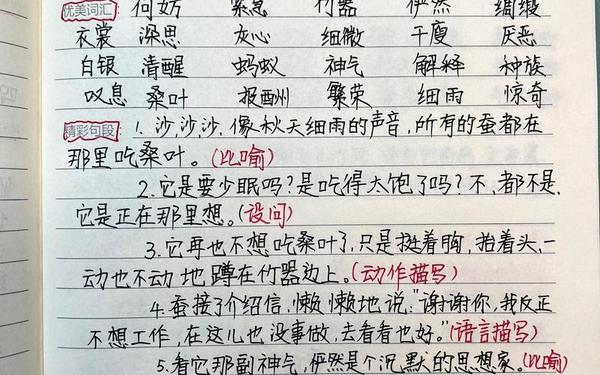 优美词汇: 何妨 紧急 竹器 俨然 绸缎
衣裳 深思 灰心 细微 干瘪 厌恶
白银 清醒 蚂蚁 神气 解释 种族
叹息 桑叶 报酬 繁荣 细雨 惊奇
精彩句段: 1. 沙,沙,沙,像秋天细雨的声音,所有的蚕都在
那里吃桑叶。(比喻)
2.它是要少眠吗?是吃得太饱了吗?不,都不是,
它是正在那里想。(设问)
3.它再也不想吃桑叶了,只是挺着胸,抬着头,一
动也不动地蹲在竹器边上。(动作描写)
4.蚕接了介绍信,懒懒地说:"谢谢你,我反正
不想工作,在这儿也没事做,去看看也好。"(语言描写)
5.看它那副神气,俨然是个沉默的思想家。(比喻)